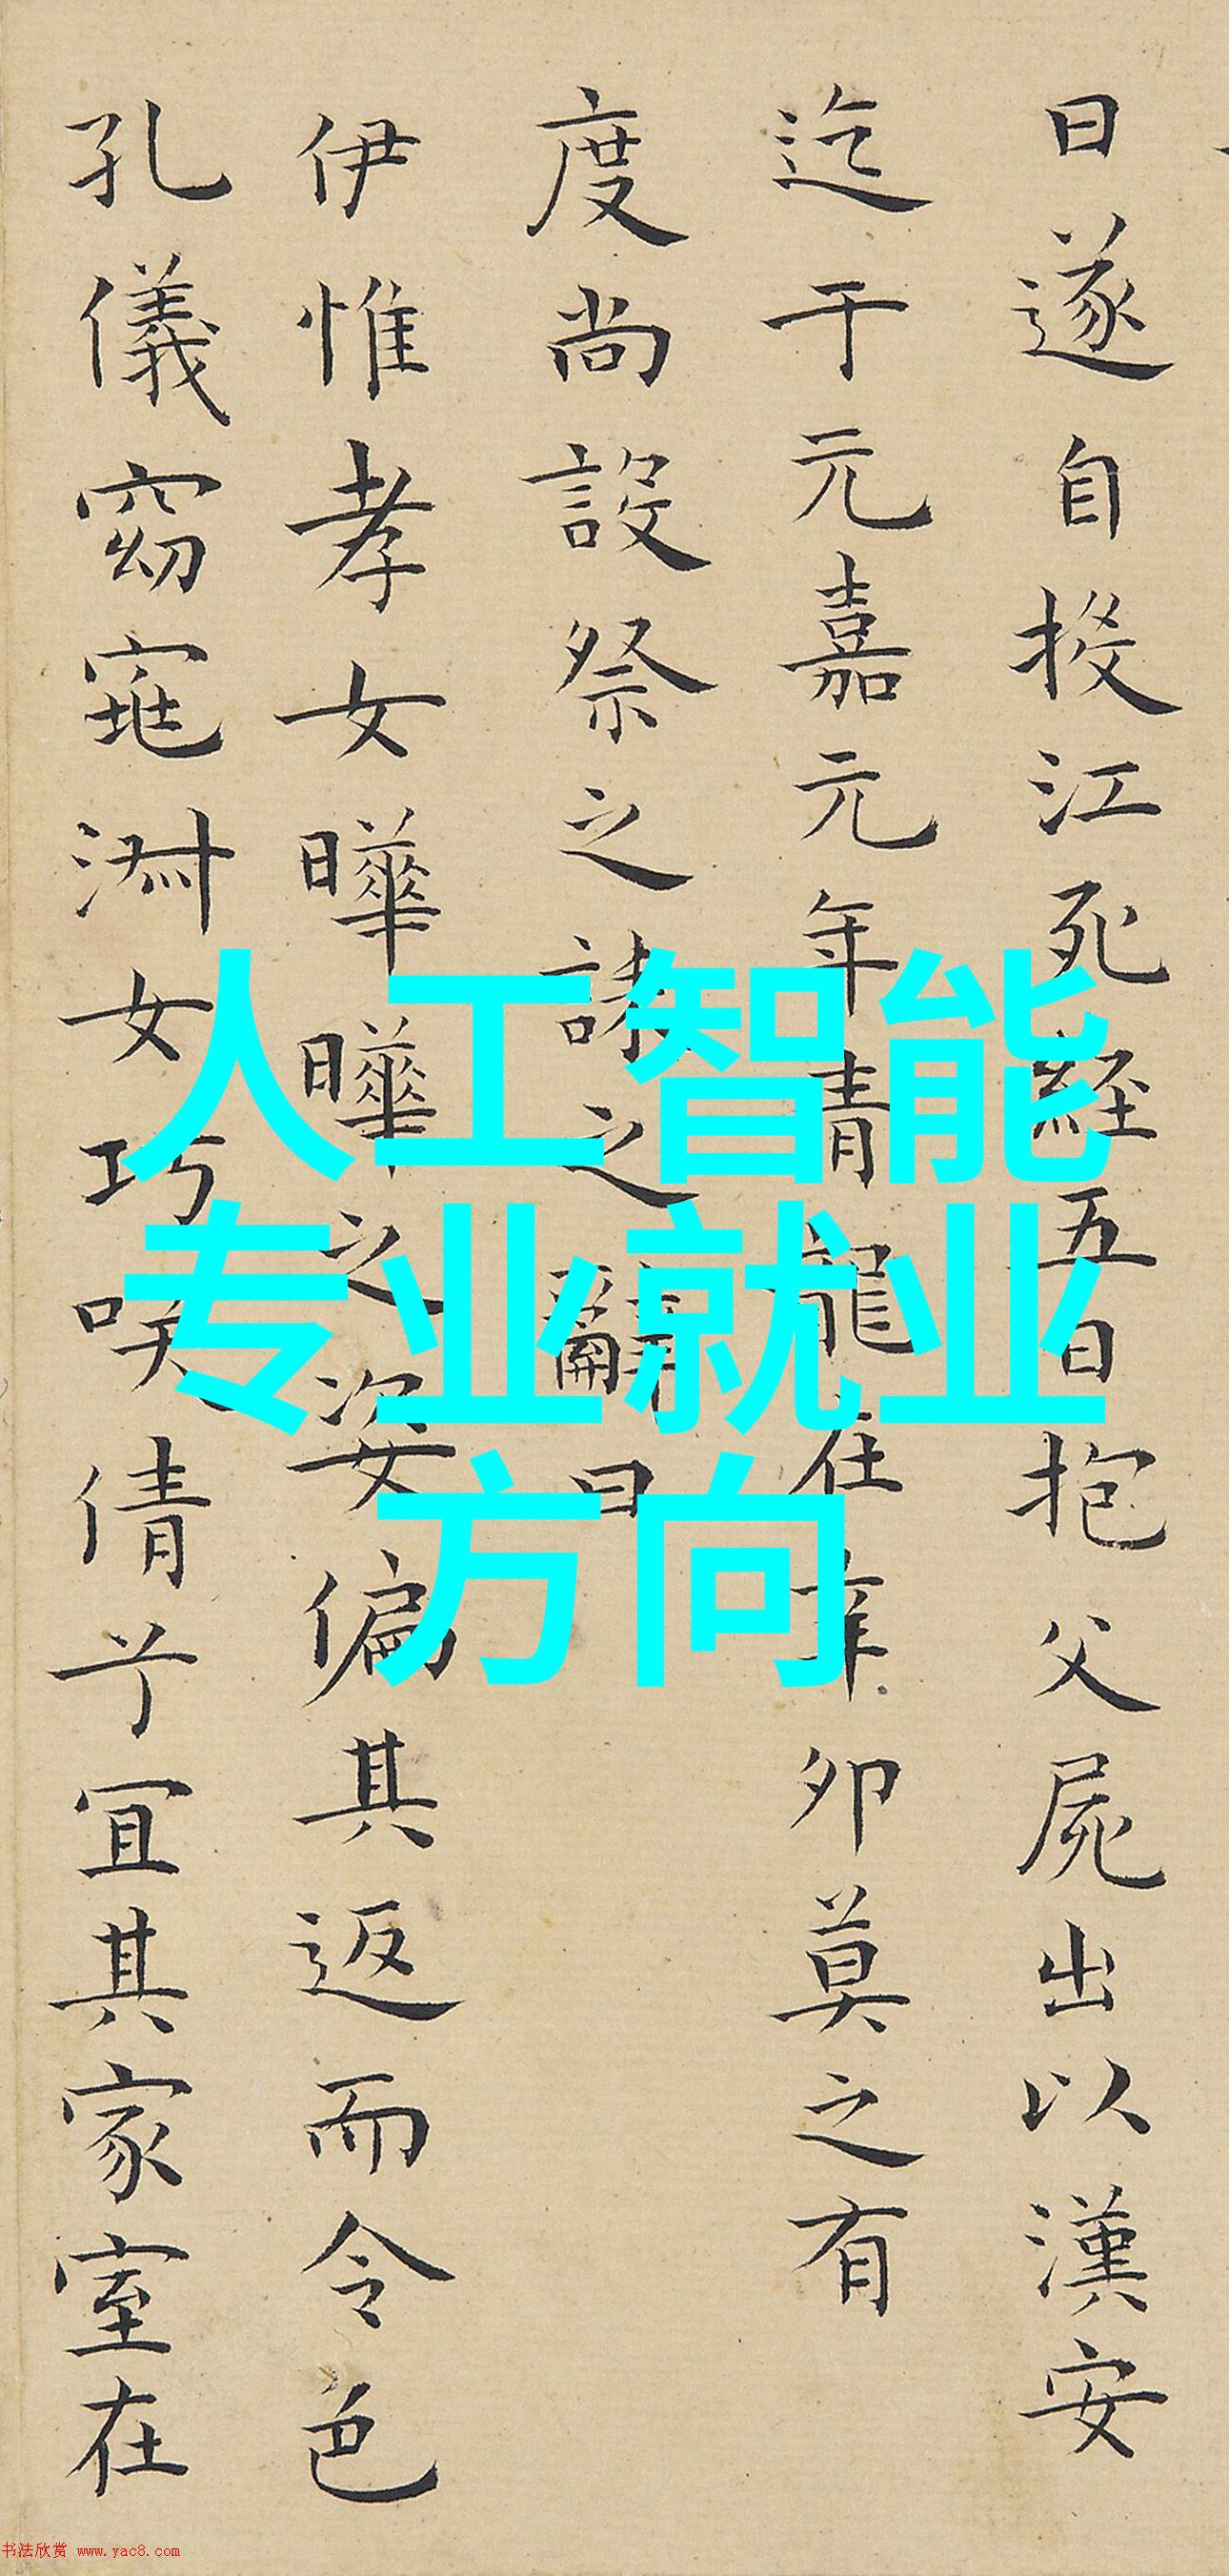 日遂自投江死經五日抱父屍出以漢安
迄于元嘉元年青龍在辛卯莫之有
度尚設祭之誄之辭曰
伊惟孝女曄曄之姿偏其返而令色
孔儀窈窕淑女巧咲倩兮宜其家室在
人工智能
专业就业
方向
书法欣赏 www.yac8.com